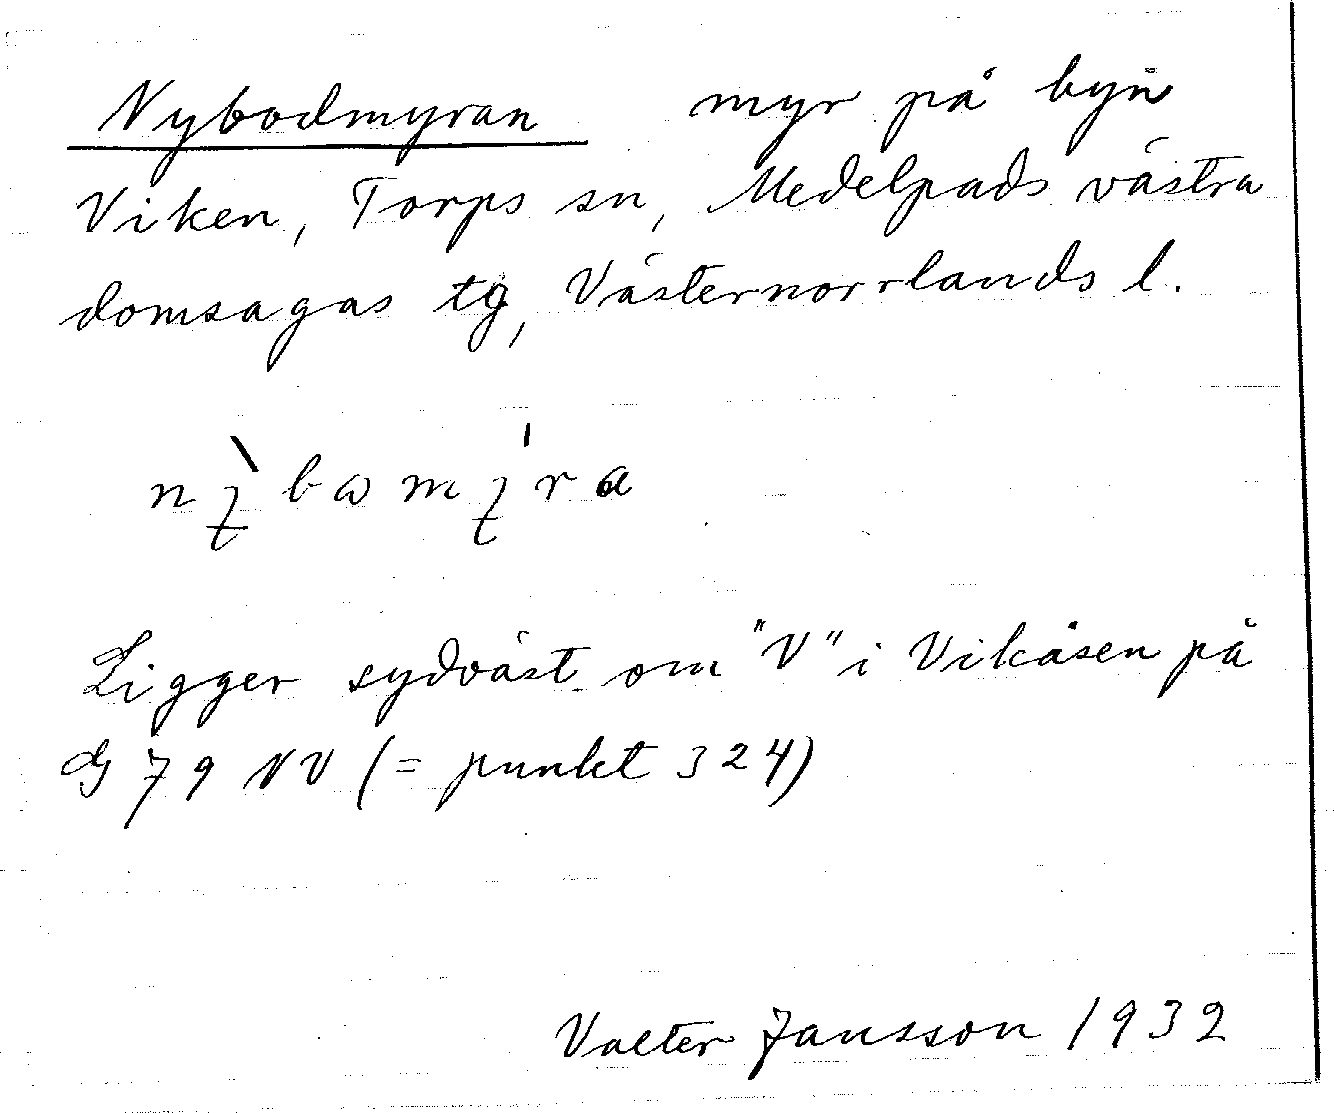 Nybodmyran myr på byn
Viken, Torps sn, Medelpads västra
domsagas tg, Västernorrlands l.
Ligger sydväst om "V" i Vikåsen på
G 79 NV (= punkt 324)
Valter Jansson 1932